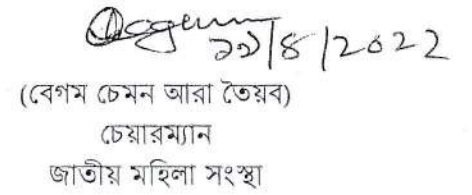 ১১/৪/২০২২
(বেগম চেমন আরা তৈয়ব)
চেয়ারম্যান
জাতীয় মহিলা সংস্থা